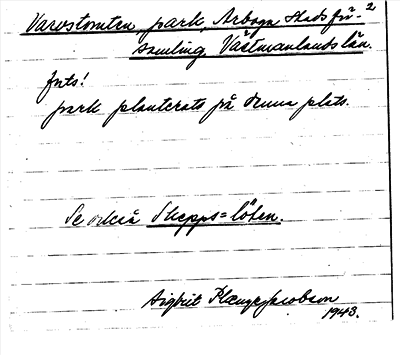 Varvstomten, park, Arboga Stadsför-²
samling Västmanlands län.
forts!
park planterats på denna plats.
Se också Skepps=löten.
Sigbrit Plænge Jacobson
1943.